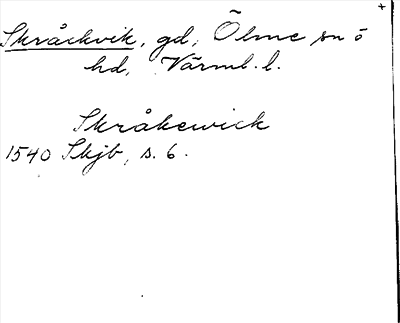 +
Skråckvik, gd, Ölme sn o
hd, Värml. l.
Skråkewick
1540 Skjb, s. 6.